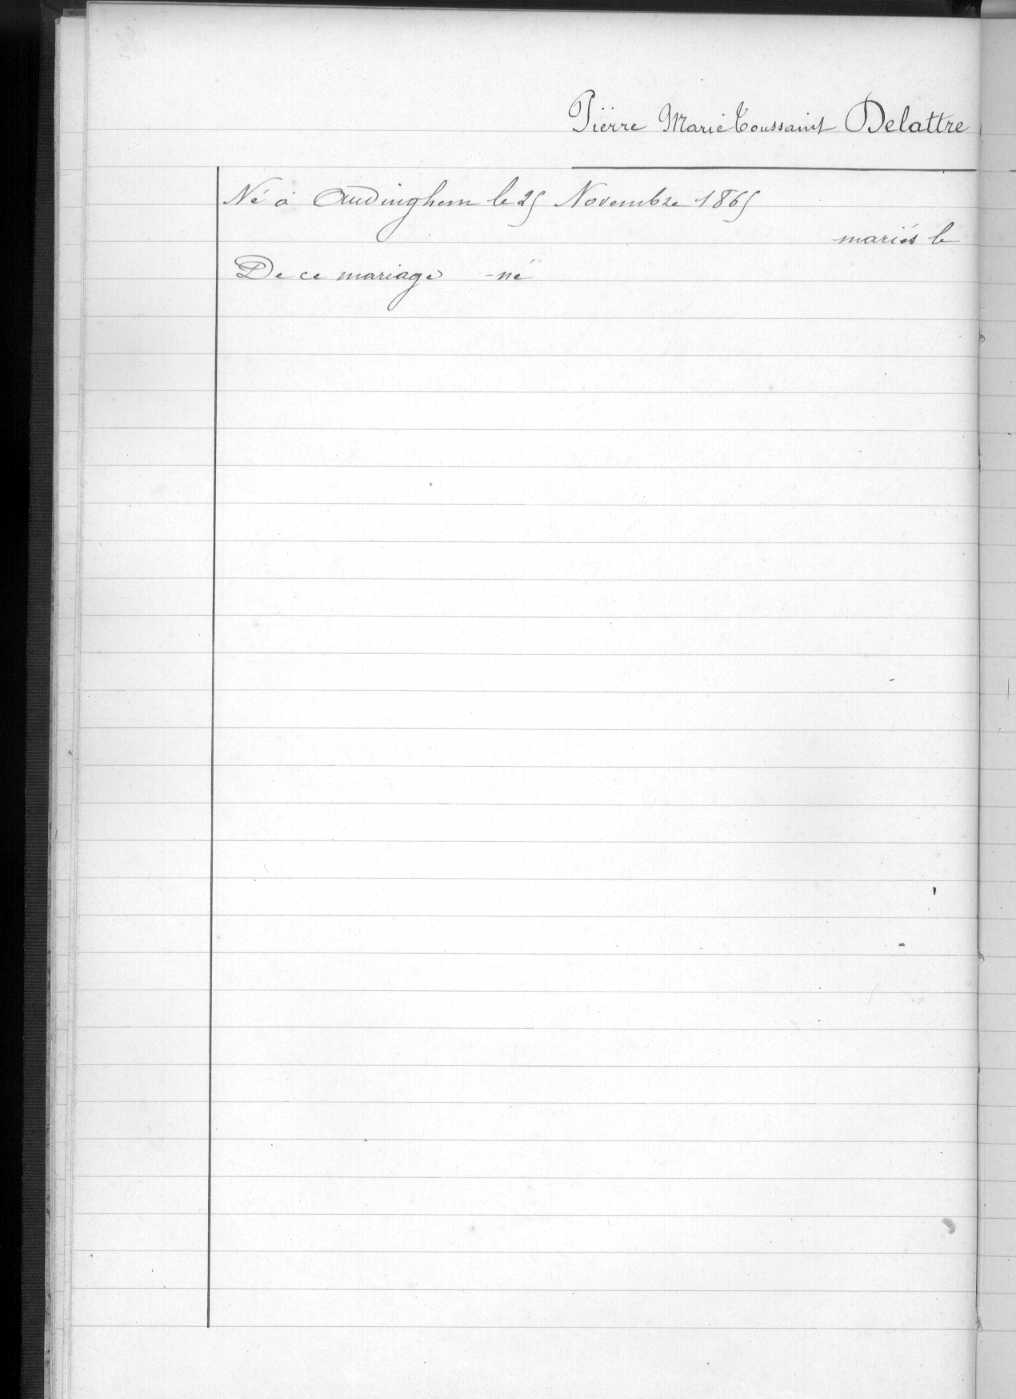 Pierre Marie Toussaint Delattre
Né à Audinghem le 25 Novembre 1865
mariés le
De ce mariage - né